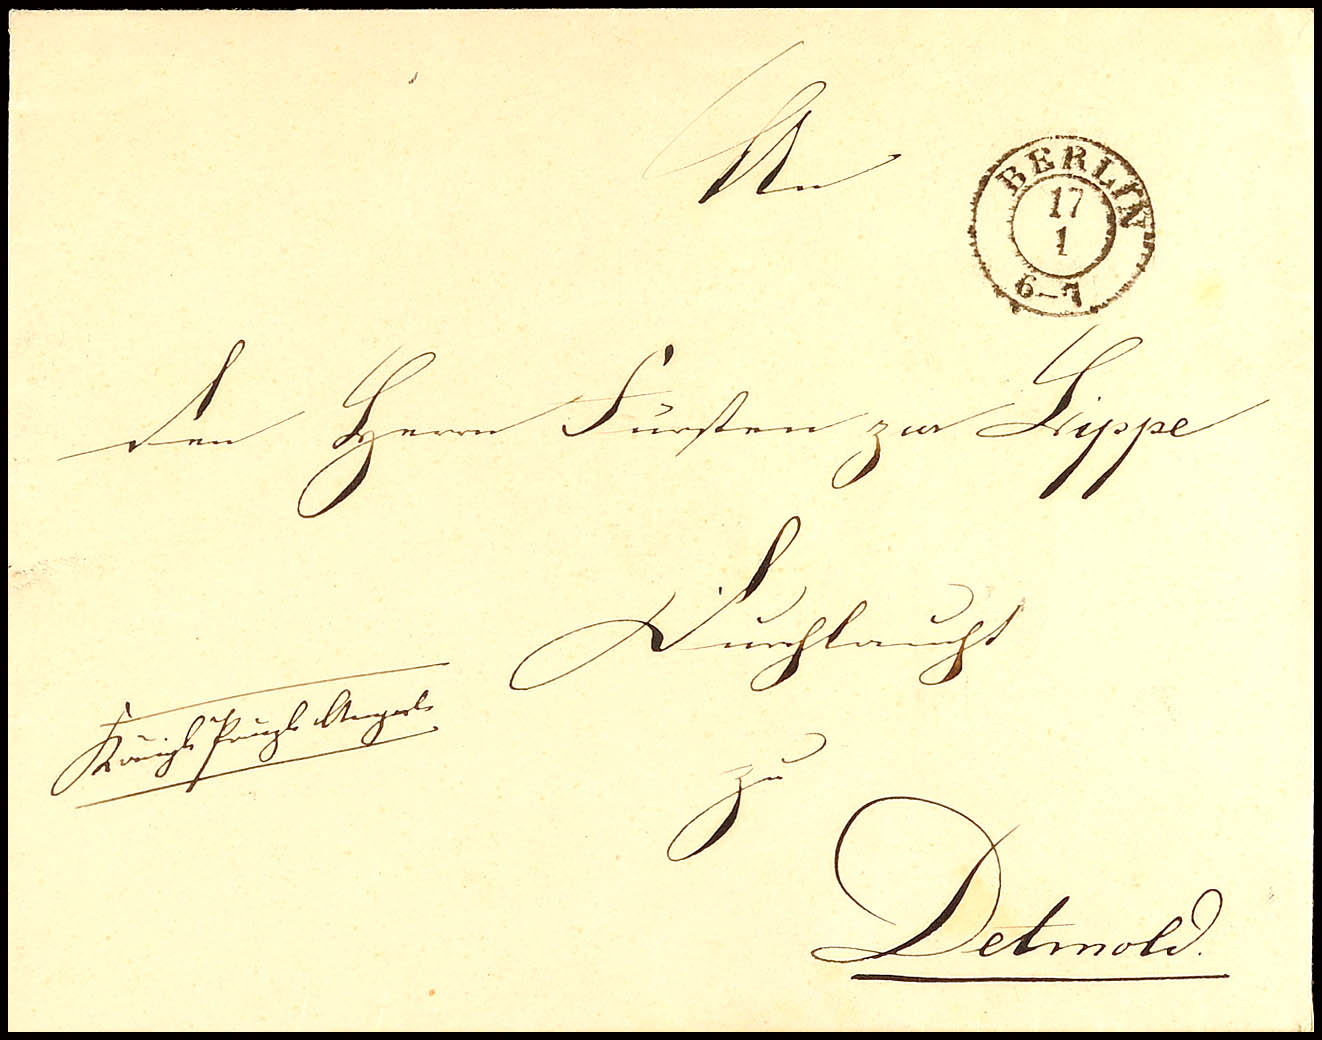 An
BERLIN
17
1
6–7
den Herrn Fürsten zur Lippe
Durchlaucht
Königl. Angel.
zu
Detmold.